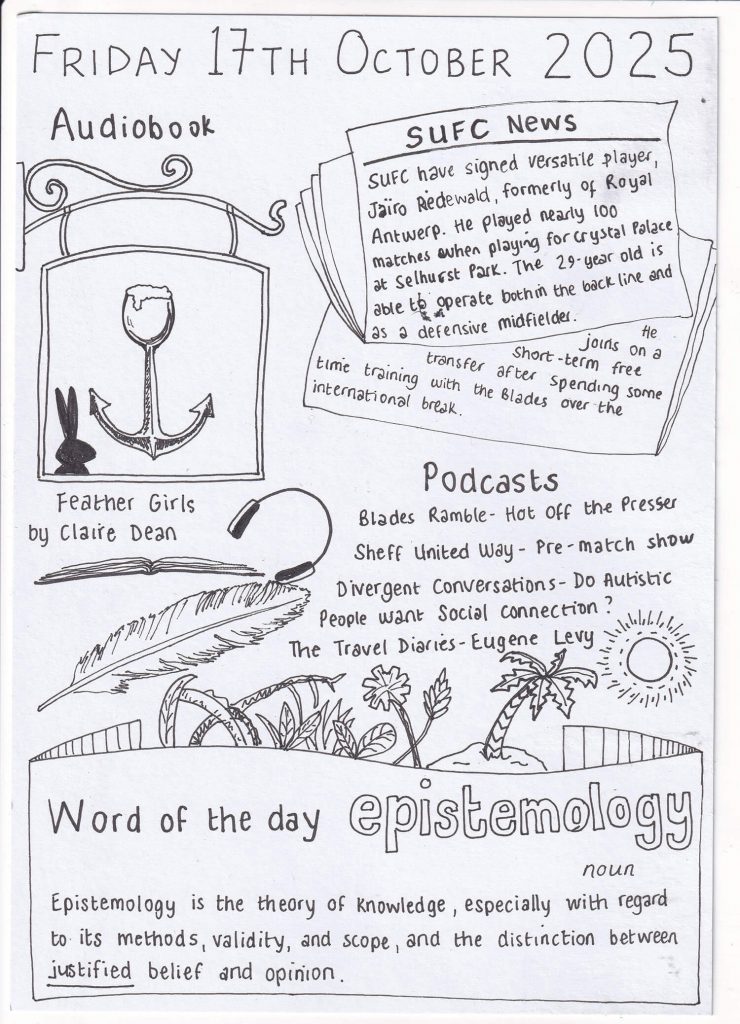 FRIDAY 17TH OCTOBER 2025
Audiobook
SUFC News
SUFC have signed versatile player,
Jaïro Riedewald, formerly of Royal
Antwerp. He played nearly 100
matches when playing for Crystal Palace
at Selhurst Park. The 29-year old is
able to operate both in the back line and
as a defensive midfielder.
He
joins on a
short-term free
transfer after spending some
time training with the Blades over the
international break.
Feather Girls
by Claire Dean
Podcasts
Blades Ramble - Hot Off the Presser
Sheff United Way - Pre-match show
Divergent Conversations - Do Autistic
People Want Social Connection?
The Travel Diaries - Eugene Levy
Word of the day epistemology
noun
Epistemology is the theory of knowledge, especially with regard
to its methods, validity, and scope, and the distinction between
justified belief and opinion.